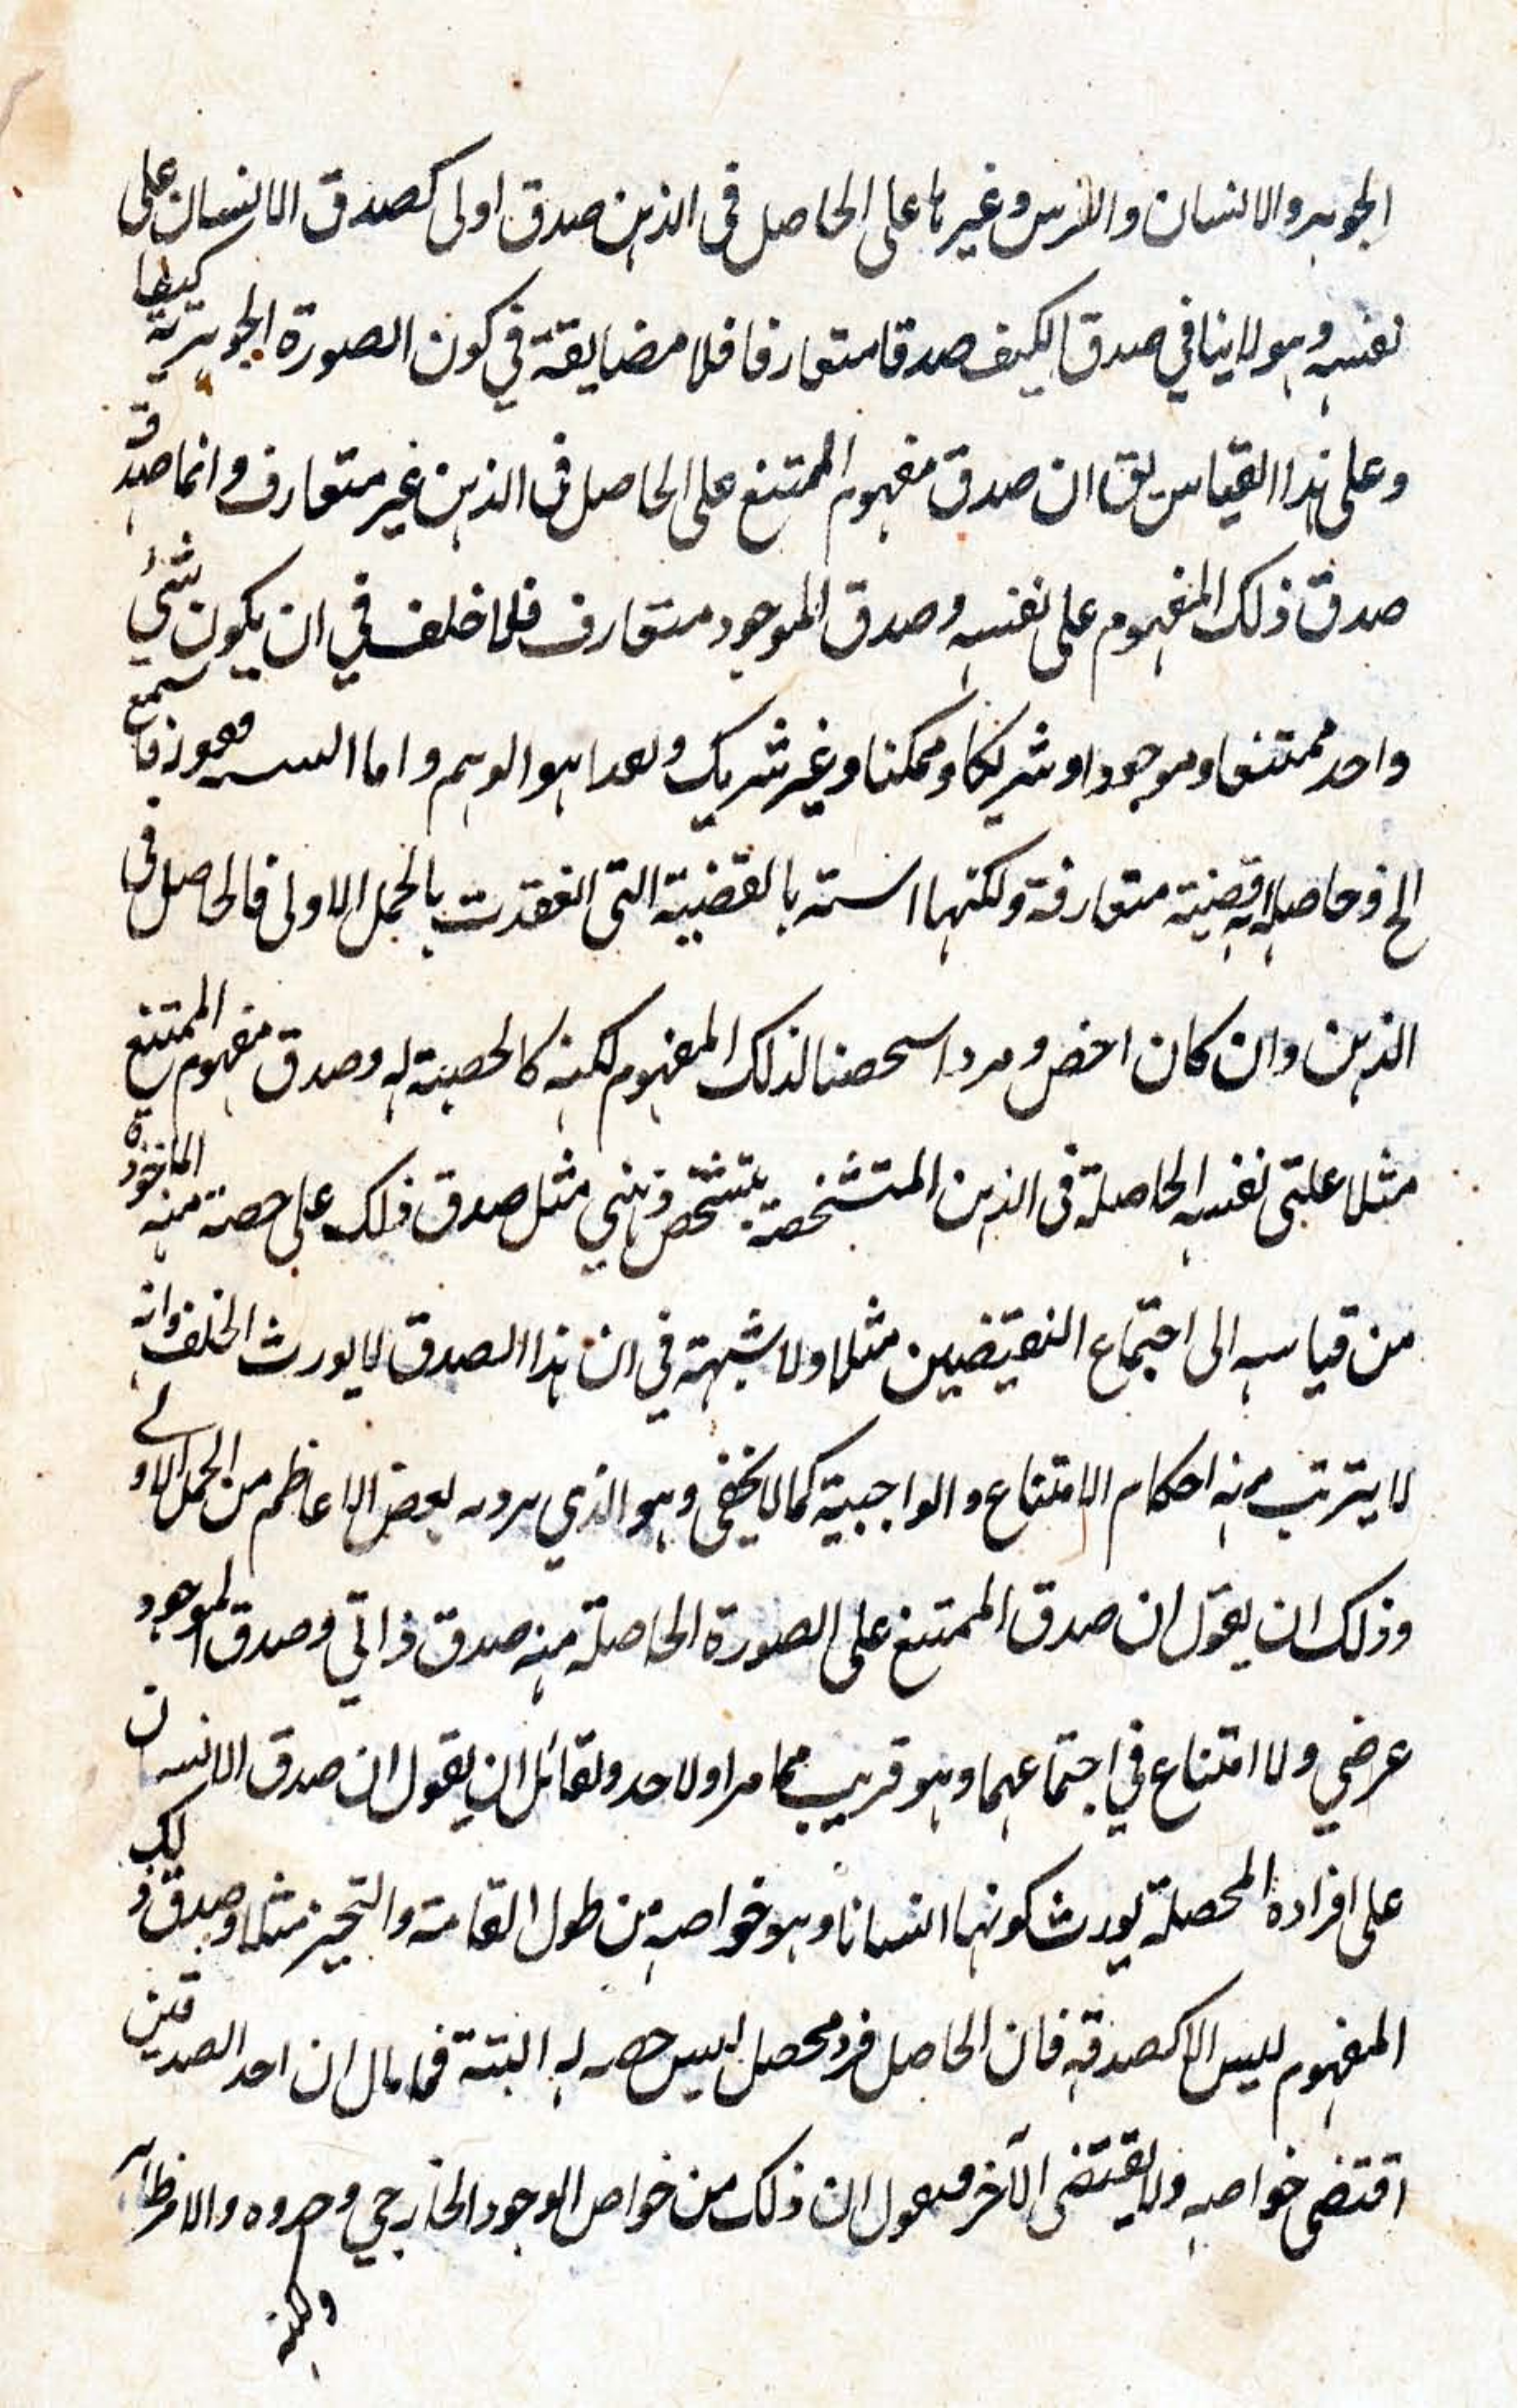 الجوهر والانسان والفرس وغيرها على الحاصل في الذهن صدق اولى كصدق الانسان على
نفسه وهو لا ينافي صدق الكيف صدقا متعارفا فلا مضايقة في كون الصورة الجوهرية كيفا
وعلى هذا القياس يق ان صدق مفهوم الممتنع على الحاصل في الذهن غير متعارف وانما صدقه
صدق ذلك المفهوم على نفسه وصدق الموجود متعارف فلا خلف في ان يكون شئ
واحد ممتنعا وموجودا وشريكا وممكنا وغير شريك وهذا هو الوهم واما فهو
الخ وحاصله انه قضية متعارفة ولكنها بالقضية التي انعقدت بالحمل الاولى فالحاصل في
الذهن وان كان اخص لذلك المفهوم لكنه كالحصة له وصدق مفهوم الممتنع
مثلا على نفسه الحاصلة في الذهن المتشخصة بتشخص ذهني مثل صدق ذلك على حصة منه الماخوذة
من قياسه الى اجتماع النقيضين مثلا ولا شبهة في ان هذا الصدق لا يورث الخلف وانه
لا يترتب منه احكام الامتناع والواجبية كما لا يخفى وهو الذي بعض الاعاظم من الحمل الاولى
وذلك ان يقول ان صدق الممتنع على الصورة الحاصلة منه صدق ذاتي وصدق الموجود
عرضي ولا امتناع في اجتماعهما وهو قريب مما مر ولاحد ولقائل ان يقول ان صدق الانسان
على افراده المحصلة يورث كونها انسانا وهو خواصه من طول القامة والتحيز مثلا وصدق ذلك
المفهوم ليس الا كصدقه فان الحاصل فرد محصل ليس حصة له البتة فما بال ان احد الصدقين
اقتضى خواصه ولا يقتضى الآخر ونقول ان ذلك من خواص الوجود الخارجي والامر ظاهر
ولكنه